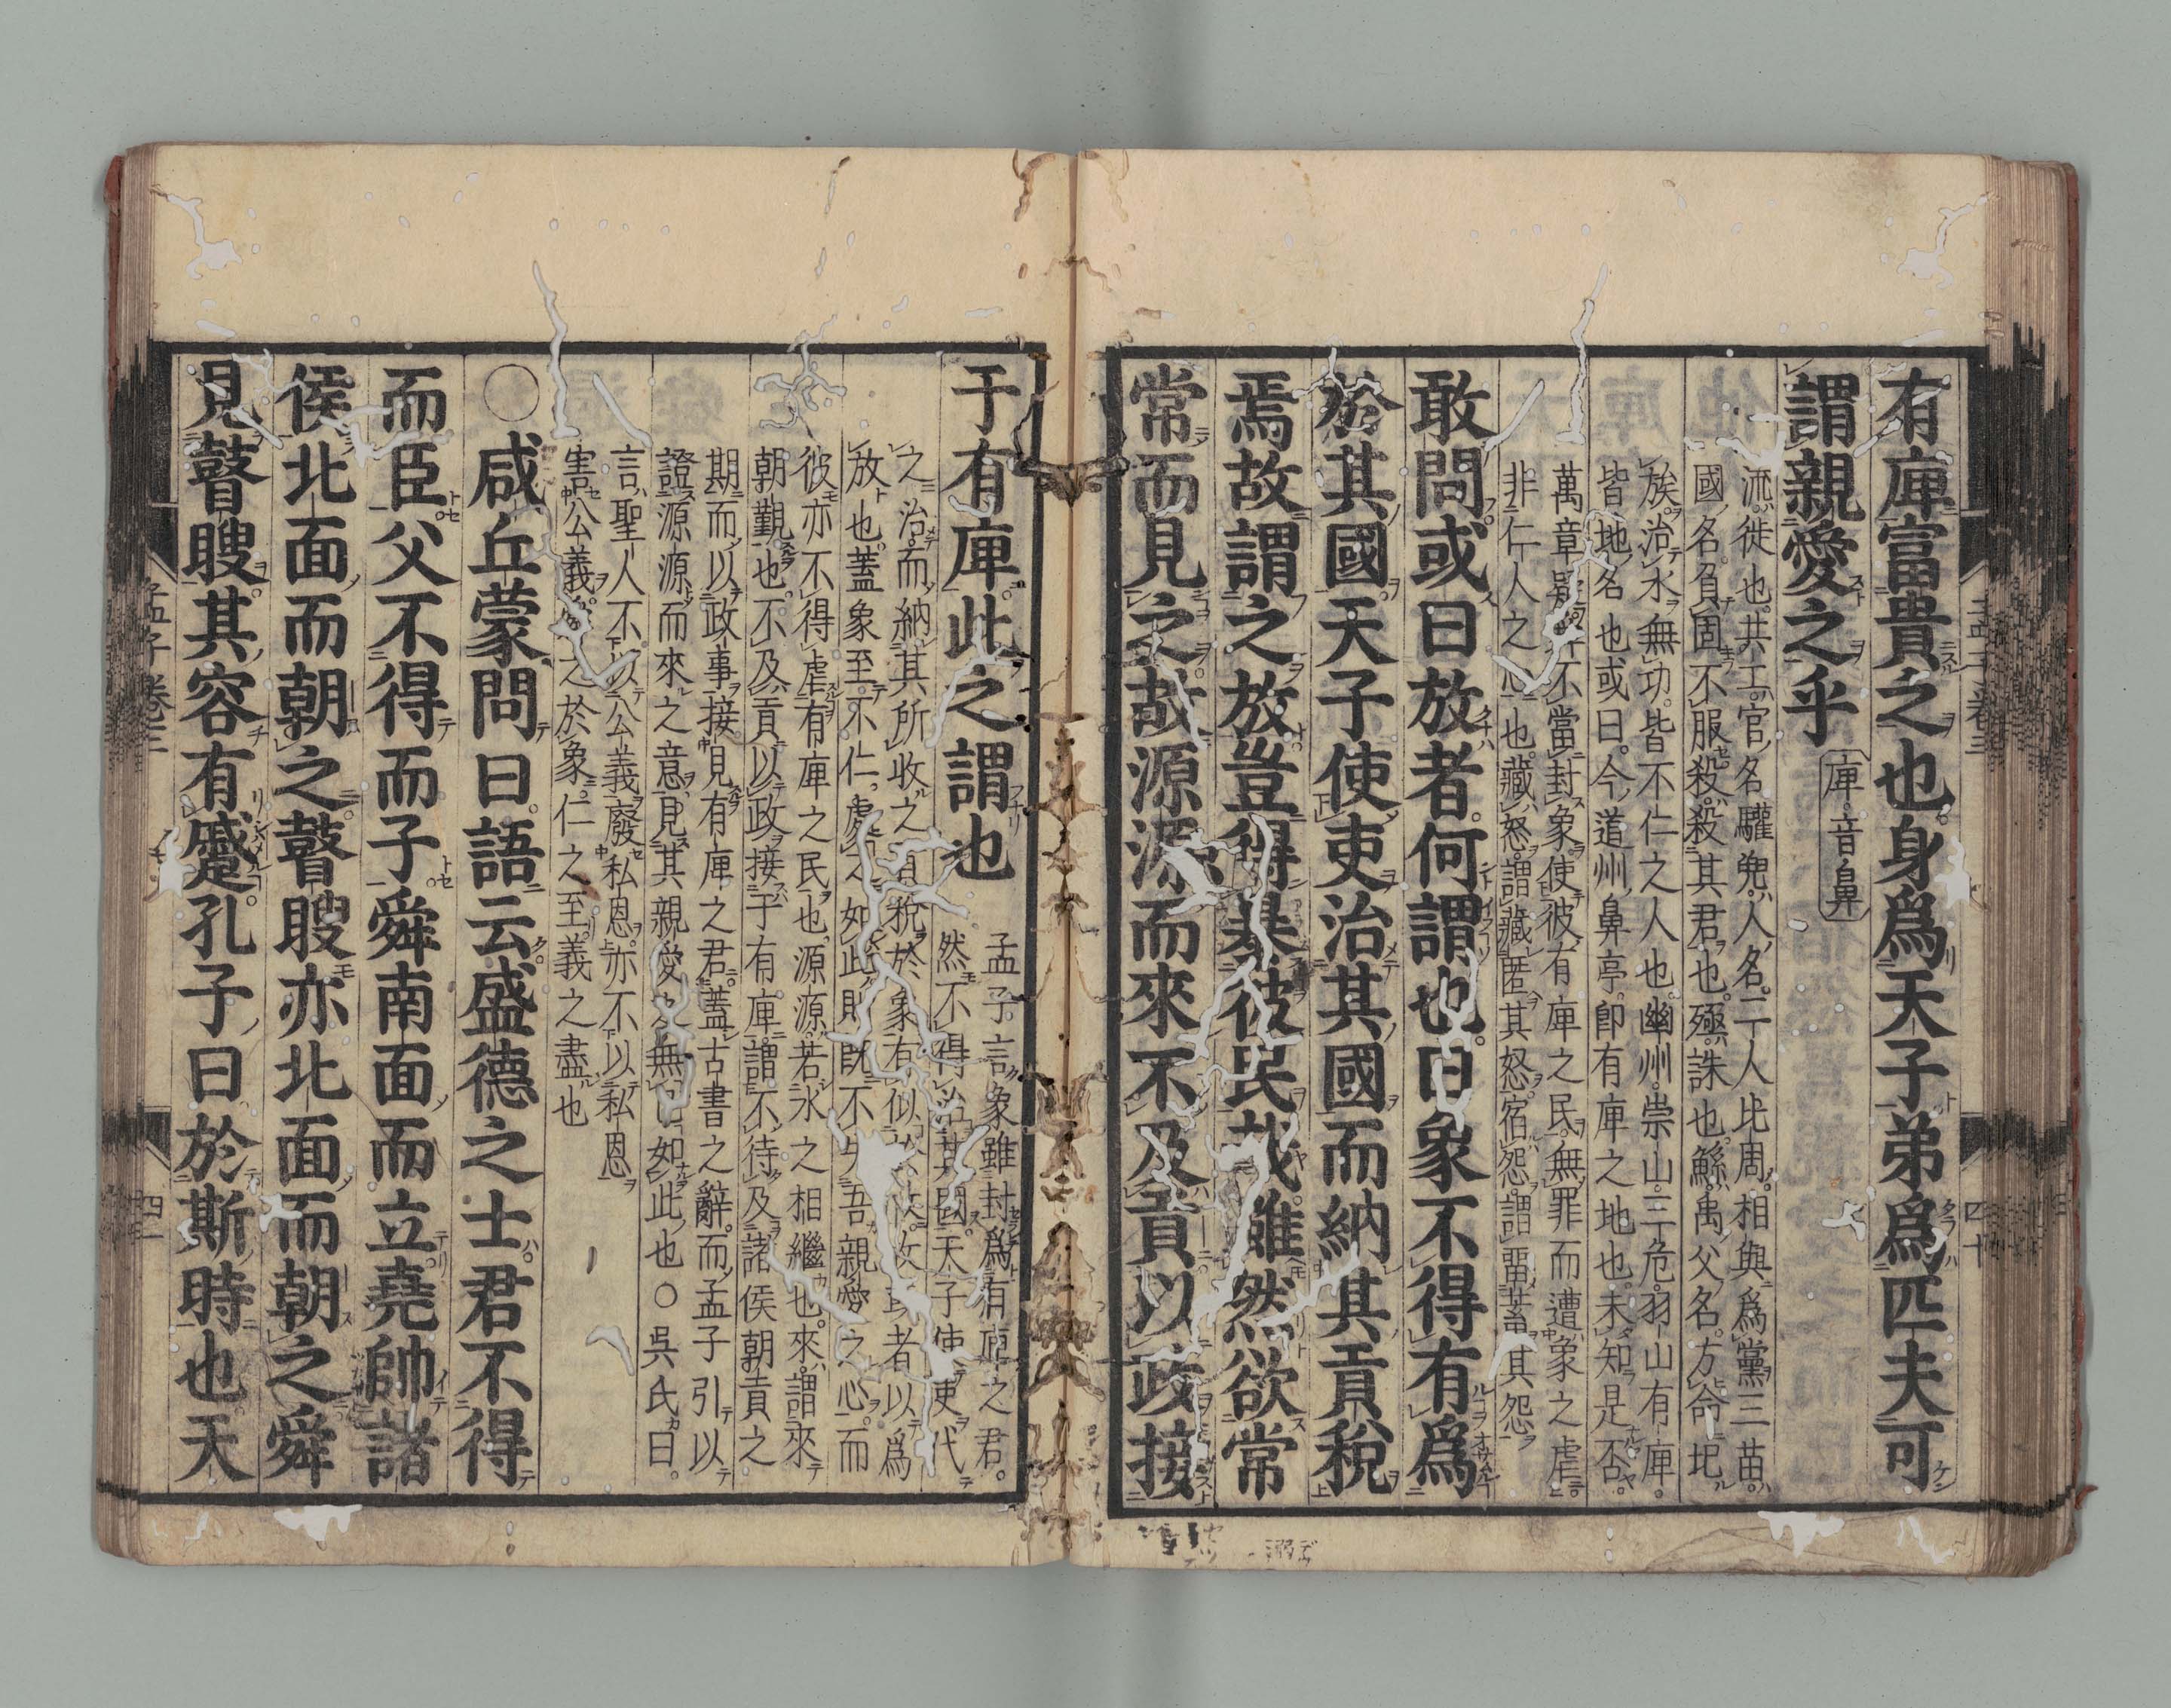 有庳富貴之也身爲天子弟爲匹夫可
謂親愛之乎
庳音鼻
流徙也共工官名驩兜人名二人比周相與爲黨三苗
國名負固不服殺殺其君也殛誅也鯀禹父名方命圮
族治水無功皆不仁之人也幽州崇山三危羽山有庳
皆地名也或曰今道州鼻亭即有庳之地也未知是否
萬章疑不當封象使彼有庳之民無罪而遭象之虐
非仁人之心也藏怒謂藏匿其怒宿怨謂畱蓄其怨
敢問或曰放者何謂也曰象不得有爲
於其國天子使吏治其國而納其貢稅
焉故謂之放豈得暴彼民哉雖然欲常
常而見之故源源而來不及貢以政接
于有庳此之謂也
孟子言象雖封爲有庳之君
然不得治其國天子使吏代
之治而納其所收之貢稅於象有似於放故或者以爲
放也蓋象至不仁處之如此則既不失吾親愛之心而
彼亦不得虐有庳之民也源源若水之相繼也來謂來
朝覲也不及貢以政接于有庳謂不待及諸侯朝貢之
期而以政事接見有庳之君蓋古書之辭而孟子引以
證源源而來之意見其親愛之無已如此也○吳氏曰
言聖人不以公義廢私恩亦不以私恩
害公義之於象仁之至義之盡也
○咸丘蒙問曰語云盛德之士君不得
而臣父不得而子舜南面而立堯帥諸
侯北面而朝之瞽瞍亦北面而朝之舜
見瞽瞍其容有蹙孔子曰於斯時也天
孟子卷三
四十
孟子卷三
四一